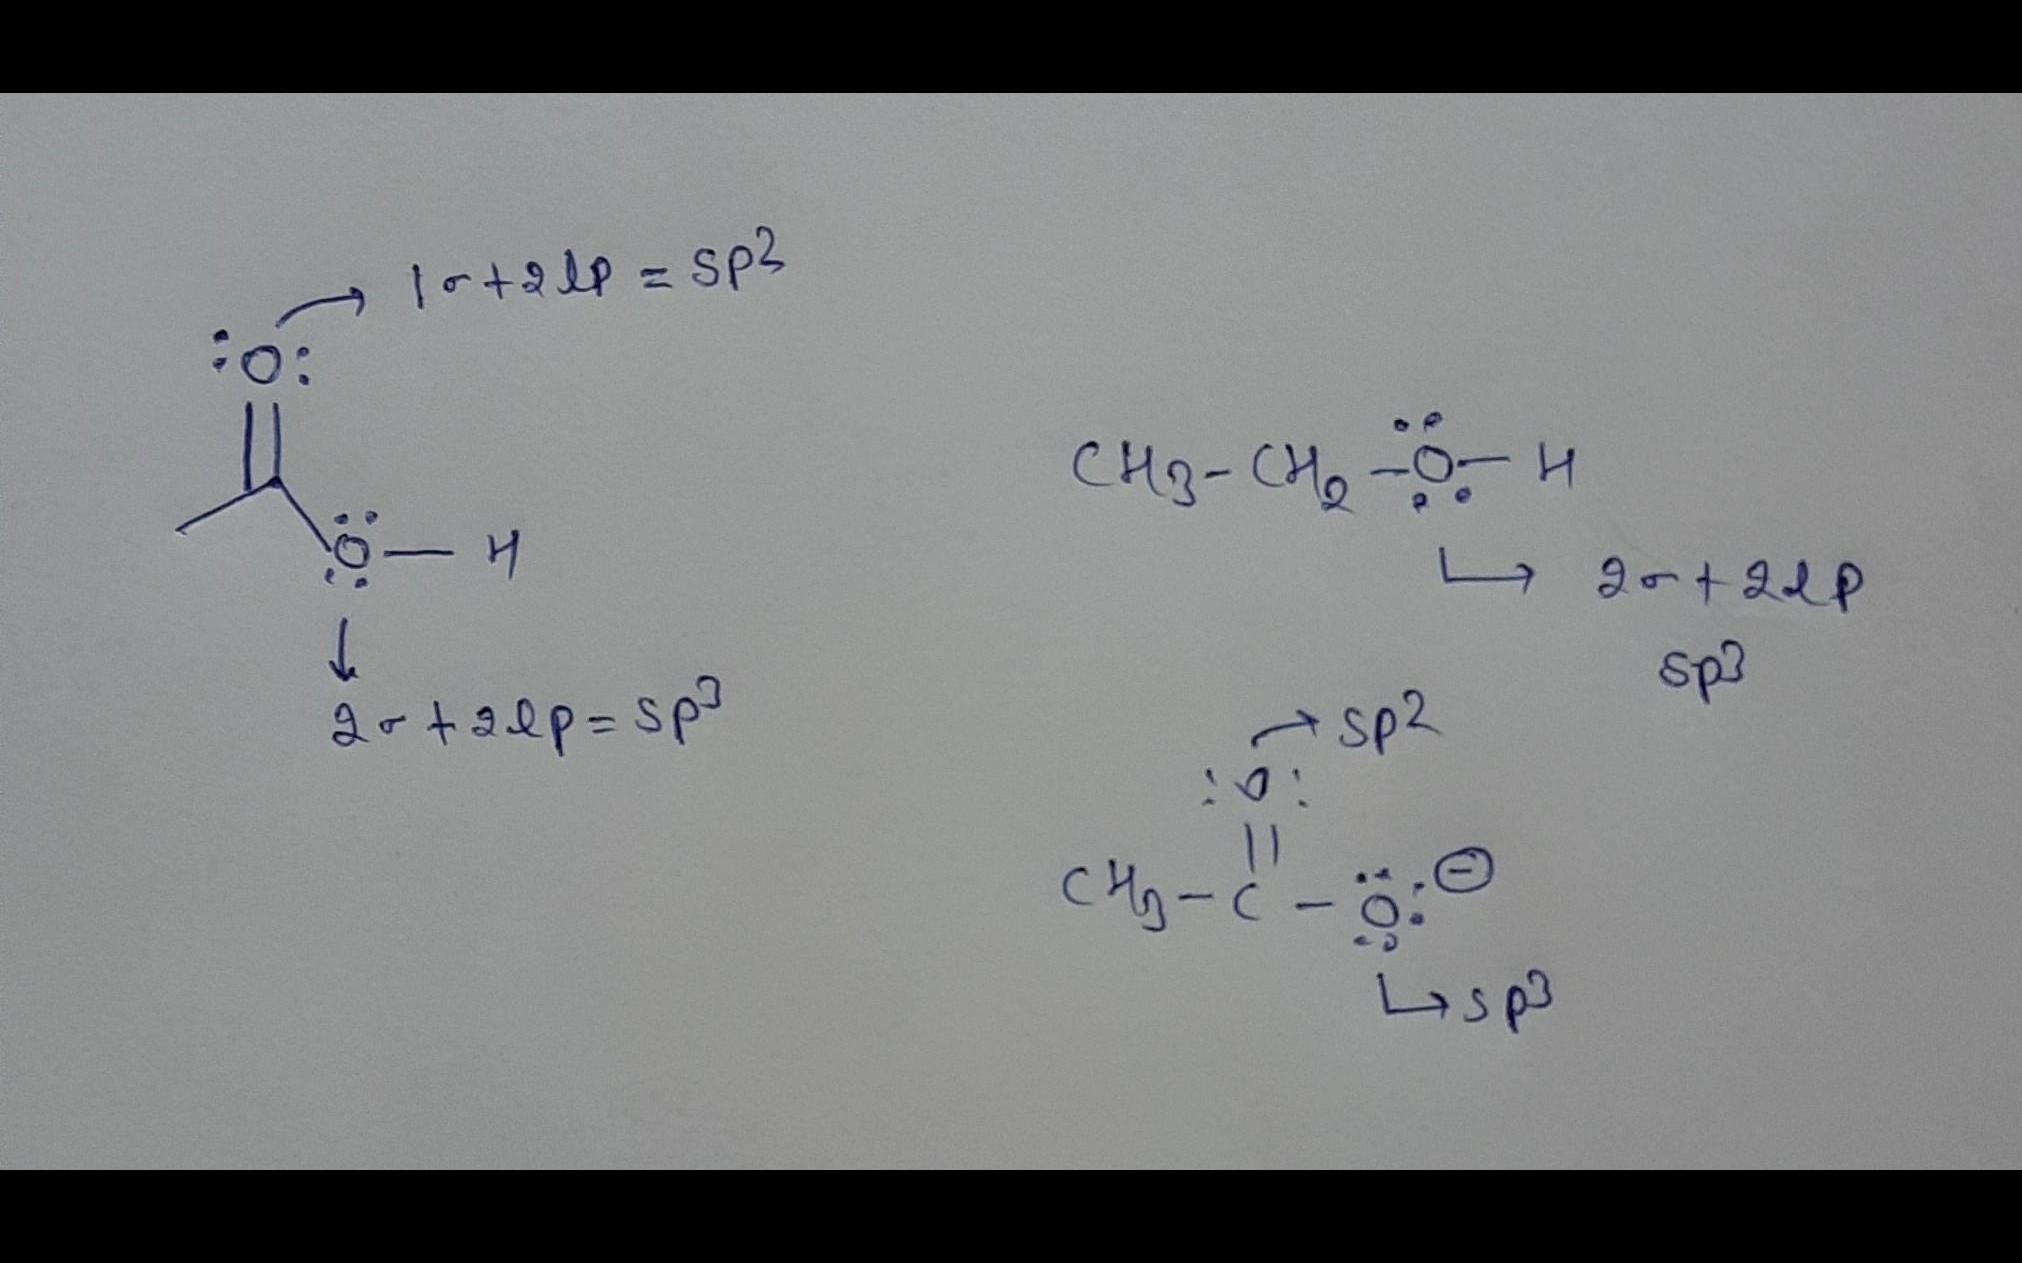 1σ+2lp = sp2
:O:
Ö — H
2σ+2lp = sp3
CH3-CH2-Ö-H
2σ+2lp
sp3
sp2
:O:
CH3-C-Ö: ⊖
sp3